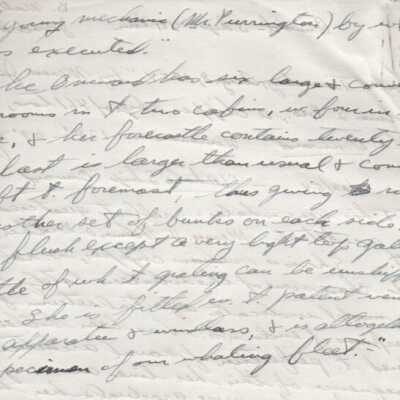 young mechanic (Mr. Purrington) by w
s executed."
he Onward has six large & conv
rooms in & two cabins, w. four in
, & her forecastle contains twenty
last is larger than usual & com
ft & foremost, thus giving
other set of bunks on each side.
flush except a very light top gal
tle of wh. & grating can be unship
She is fitted w. & patent ven
apparatus & windlass, & is altoge
pecimen of our whaling fleet."